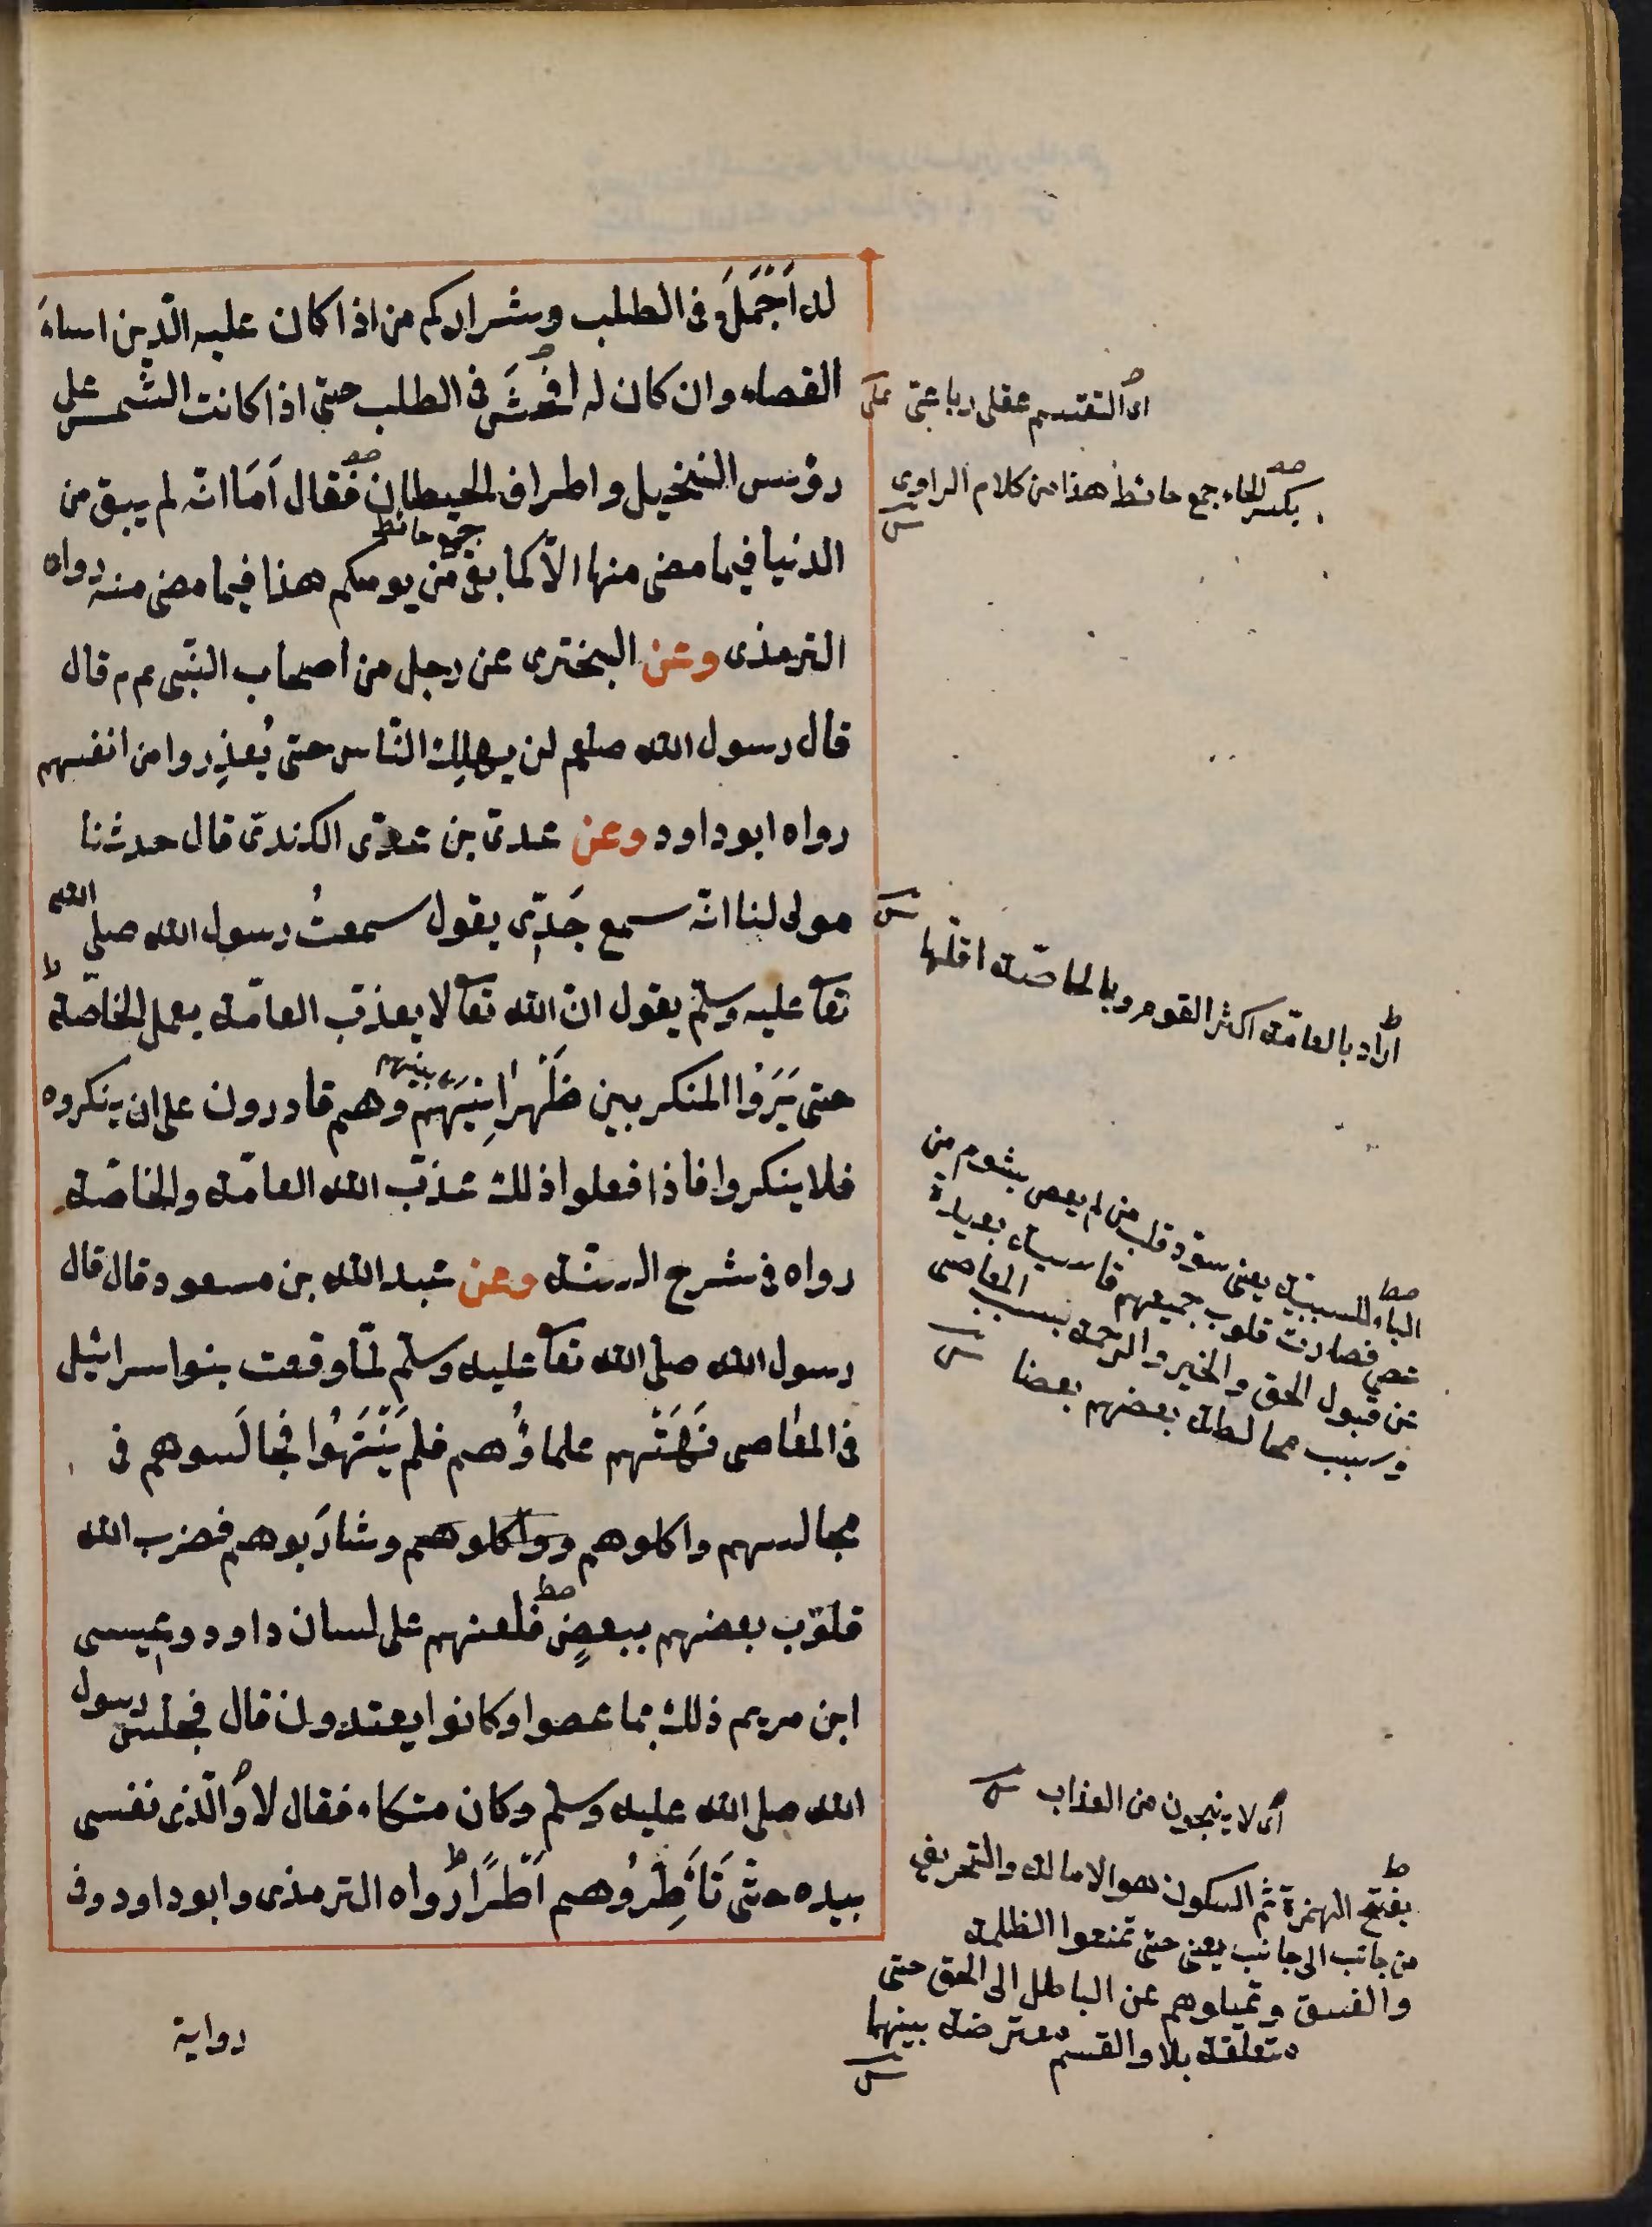 له اَجْمَلَ فى الطلب وشراركم من اذا كان عليه الدّين اساءَ
القصاء وان كان له افحَشَ فى الطلب حتى اذا كانت الشّمس على
رؤس النخيل واطراف الحيطان فقال اَمَا انّه لم يبق من
جمع حائط
الدنيا فيما مضى منها الاّ كما بقى من يومكم هذا فيما مضى منه رواه
الترمذى وعن البخترى عن رجل من اصحاب النّبى عم م قال
قال رسول الله صلعم لن يهلِك النّاس حتى يُعذِروا من انفسهم
رواه ابوداود وعن عدىّ بن عدىّ الكندىّ قال حدثنا
مولى لنا انّه سمع جَدِّى يقول سمعتُ رسول الله صلى الله
تعا عليه وسلّم يقول انّ الله تعا لا يعذّب العامّة بعمل الخاصّة
حتى يَرَوْا المنكر بين ظَهْرَانِيَهم وهم قادرون على ان ينكروه
بينهم
فلا ينكروا فاذا فعلوا ذلك عذّب الله العامّة والخاصّة
رواه فى شرح السنّة وعن عبد الله بن مسعود قال قال
رسول الله صلى الله تعا عليه وسلم لمّا وقعت بنوا سرائيل
فى المعاصى نَهَتْهم علماؤُهم فلم يَنْتَهُوا فجالَسوهم فى
مجالسهم واكلوهم وواكلوهم وشارَبوهم فضرب الله
قلوب بعضهم ببعضٍ فلعنهم على لسان داود وعيسى
ابن مريم ذلك بما عصوا وكانوا يعتدون قال فجلس رسول
الله صلى الله عليه وسلم وكان متكاء فقال لا والّذى نفسى
بيده حتّى تَأْطِرُوهم اَطْرًا رواه الترمذى وابو داود وفى
رواية
اى التقسيم عقلى رباعىّ
بكسر الحاء جمع حائط هذا من كلام الراوى
اراد بالعامّة اكثر القوم وبالخاصّة اقلّها
الباء للسببيّة يعنى سوّد قلب من لم يعص بشوم من
عصى فصارت قلوب جميعهم قاسية بعيدة
عن قبول الحق والخير والرحمة بسبب المعاصى
وسبب مخالطة بعضهم بعضا
اى لا ينجون من العذاب
بفتح الهمزة ثم السكون هو الامالة والتحريف
من جانب الى جانب يعنى حتى تمنعوا الظلمة
والفسق وتميلوهم عن الباطل الى الحق حتى
متعلقة بلا والقسم معترضة بينهما